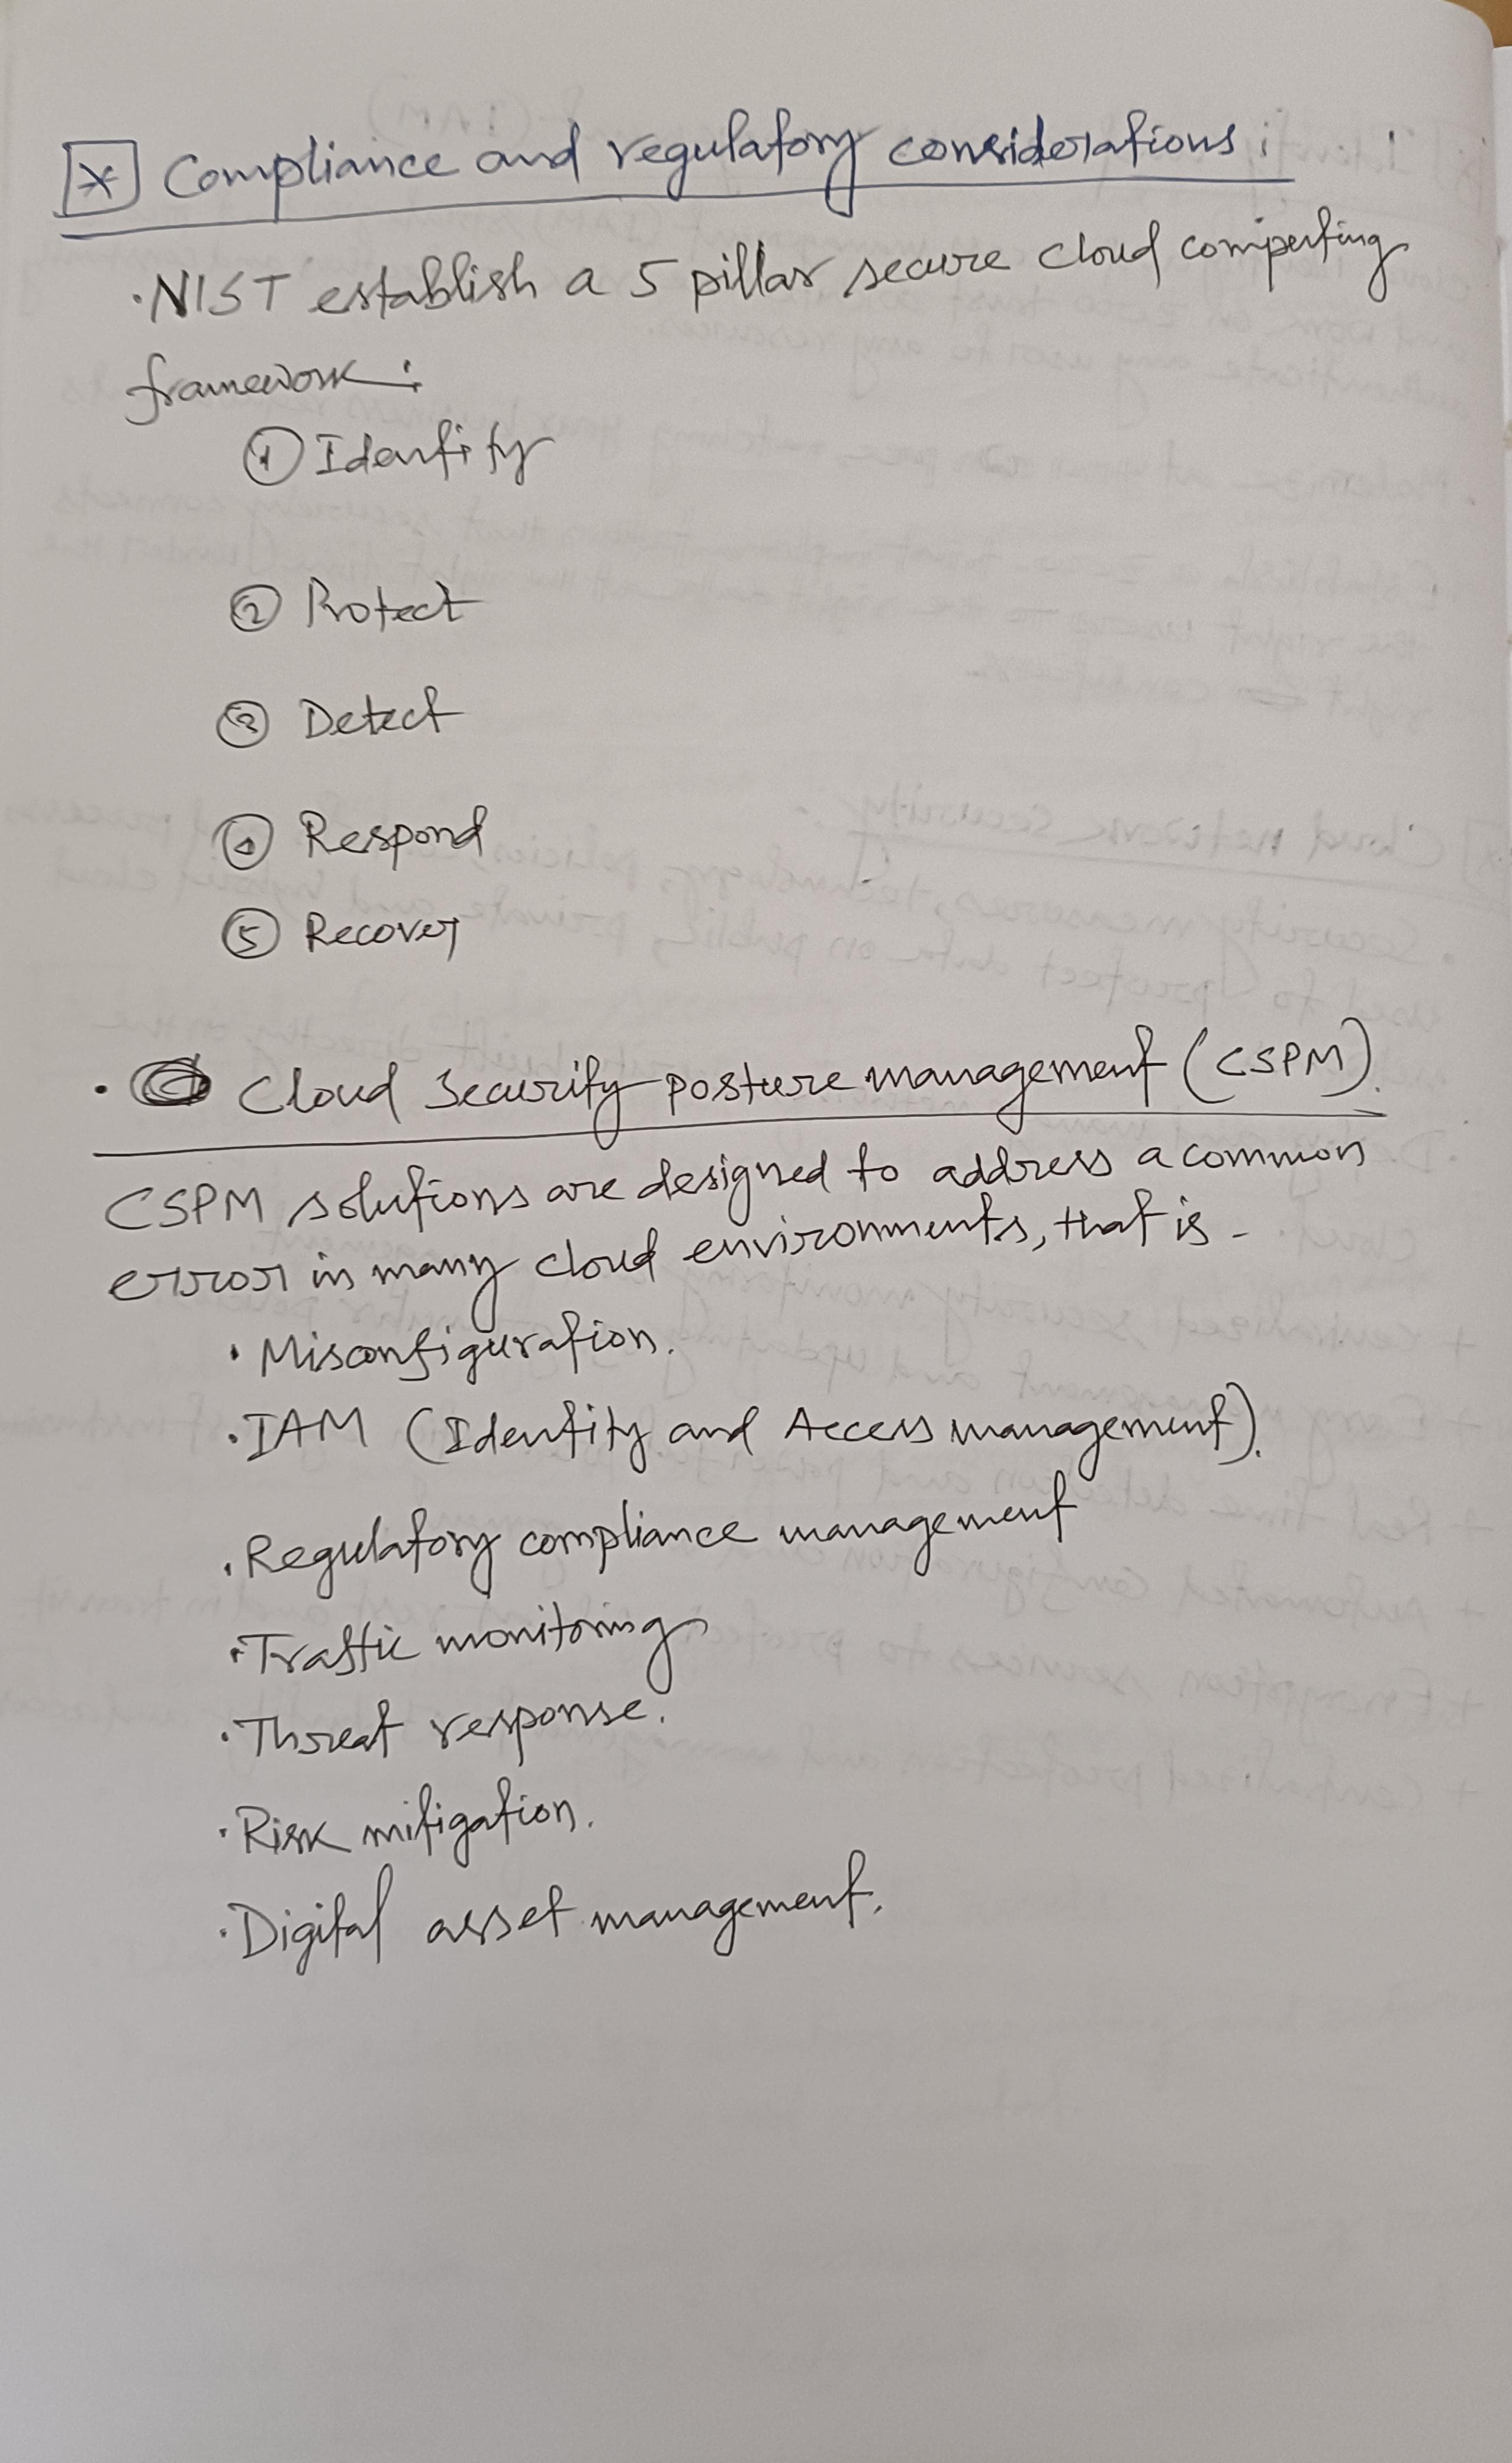 * Compliance and regulatory considerations:
· NIST establish a 5 pillar secure cloud computing
framework:
① Identify
② Protect
③ Detect
④ Respond
⑤ Recover
· Cloud Security posture management (CSPM).
CSPM solutions are designed to address a common
error in many cloud environments, that is -
· Misconfiguration.
· IAM (Identity and Access management).
· Regulatory compliance management
· Traffic monitoring
· Threat response.
· Risk mitigation.
· Digital asset management.